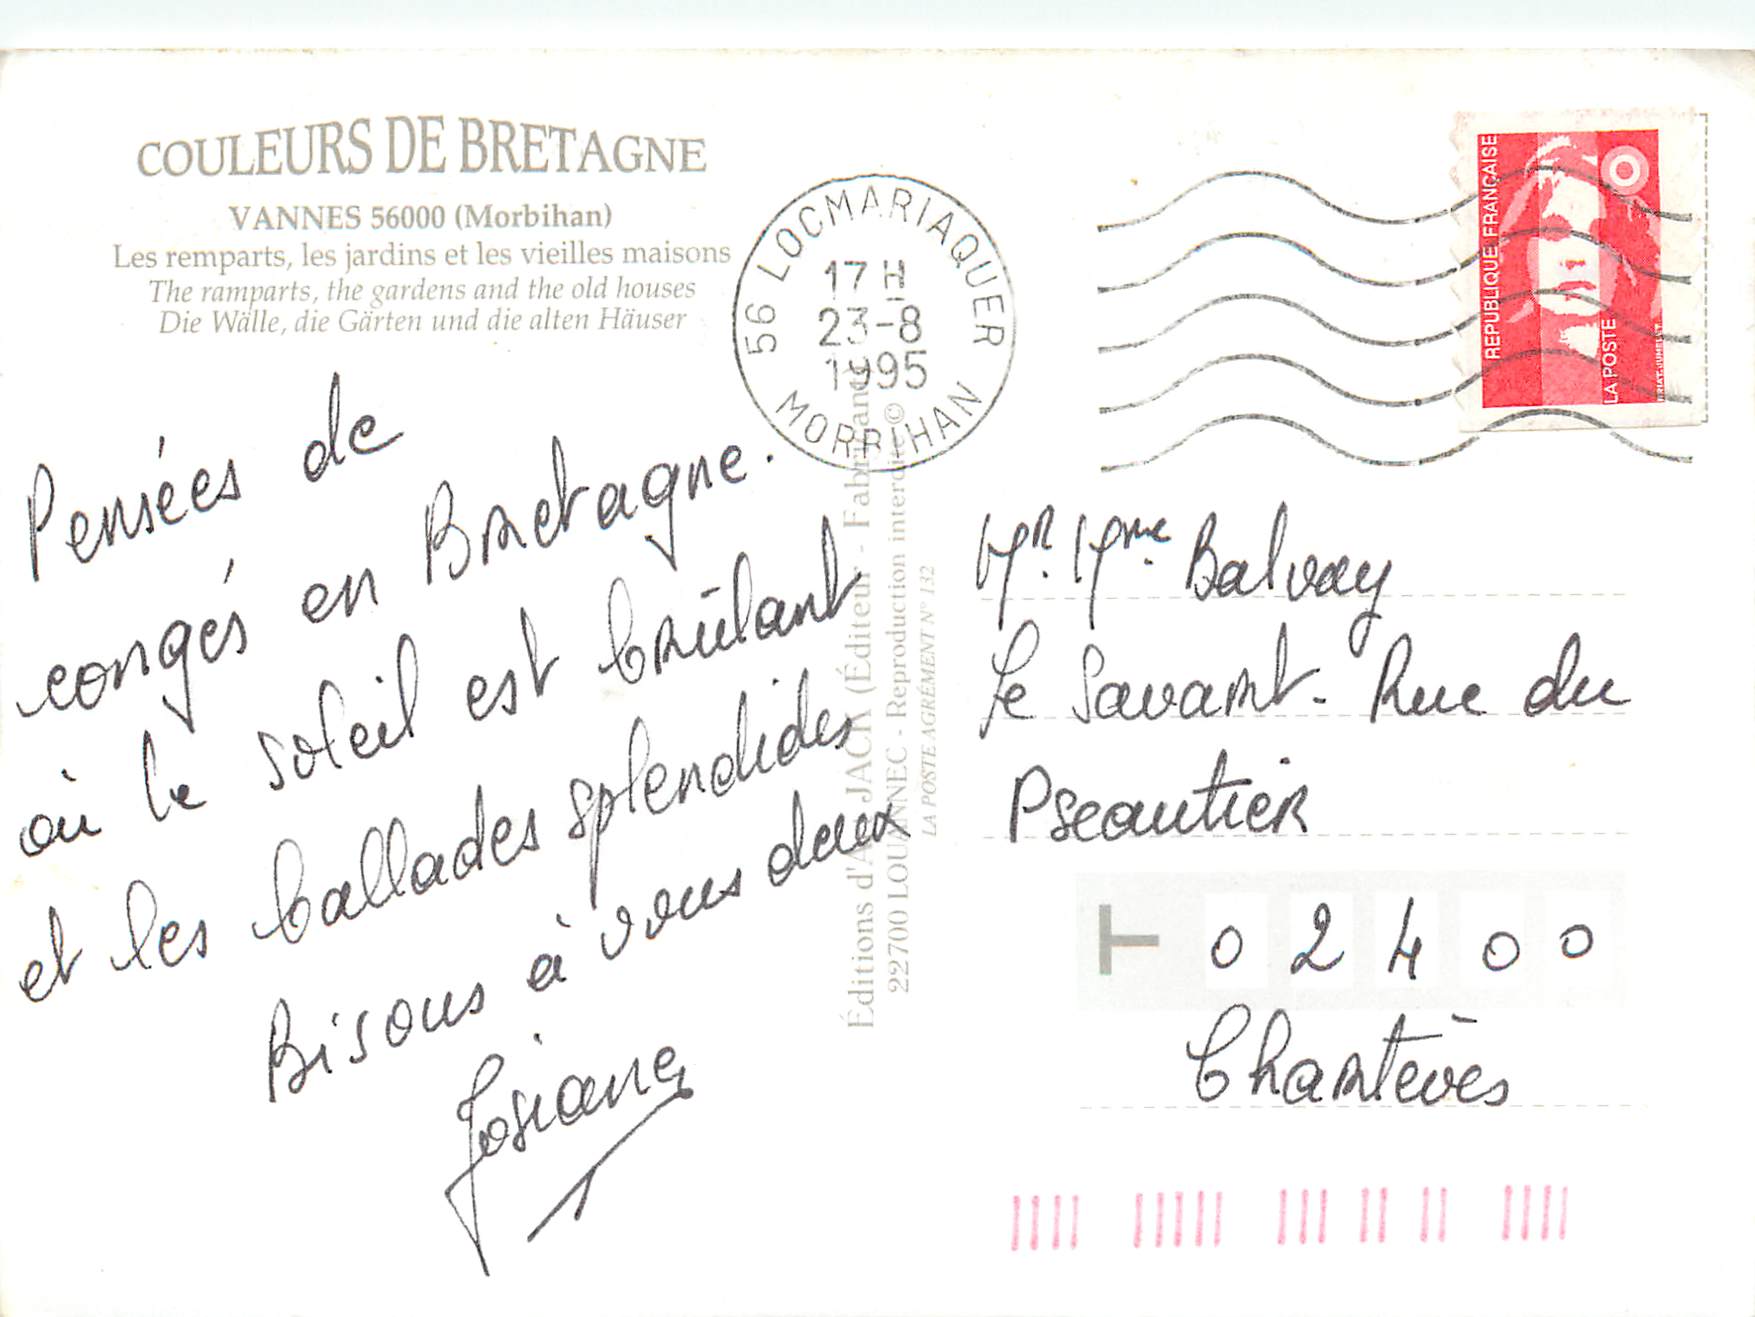 COULEURS DE BRETAGNE
VANNES 56000 (Morbihan)
Les remparts, les jardins et les vieilles maisons
The ramparts, the gardens and the old houses
Die Wälle, die Gärten und die alten Häuser
56 LOCMARIAQUER
17 H
23-8
1995
MORBIHAN
REPUBLIQUE FRANÇAISE
LA POSTE
Pensées de
congés en Bretagne.
où le soleil est brûlant
et les ballades splendides
Bisous à vous deux
Josiane
Éditions d'Art JACK (Éditeur - Fabricant)
22700 LOUANNEC - Reproduction interdite ©
LA POSTE AGRÉMENT N° 132
Mr. Mme Balvay
Le Savart. Rue du
Pseautier
02400
Chartèves